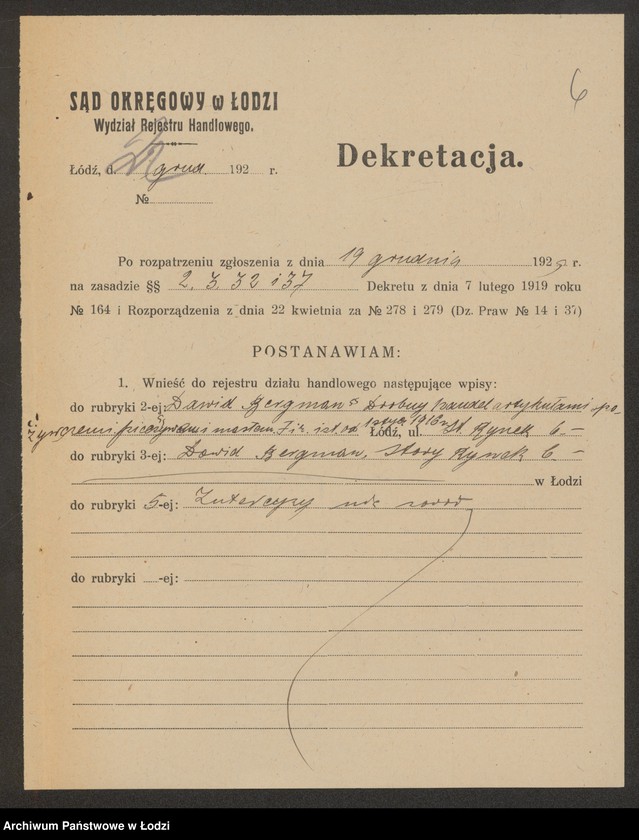 6
SĄD OKRĘGOWY w ŁODZI
Wydział Rejestru Handlowego.
Dekretacja.
Łódź, d. grud. 192 r.
№
Po rozpatrzeniu zgłoszenia z dnia 19 grudnia 192 r.
na zasadzie §§ 2. 3. 32 i 37 Dekretu z dnia 7 lutego 1919 roku
№ 164 i Rozporządzenia z dnia 22 kwietnia za № 278 i 279 (Dz. Praw № 14 i 37)
POSTANAWIAM:
1. Wnieść do rejestru działu handlowego następujące wpisy:
do rubryki 2-ej: „Dawid Bergman" Drobny handel artykułami spo-
żywczemi i Łódź, ul. St. Rynek 6. –
do rubryki 3-ej: Dawid Bergman, Stary Rynek 6. –
w Łodzi
do rubryki 5-ej: Intercyzy nie
do rubryki -ej:
Archiwum Państwowe w Łodzi